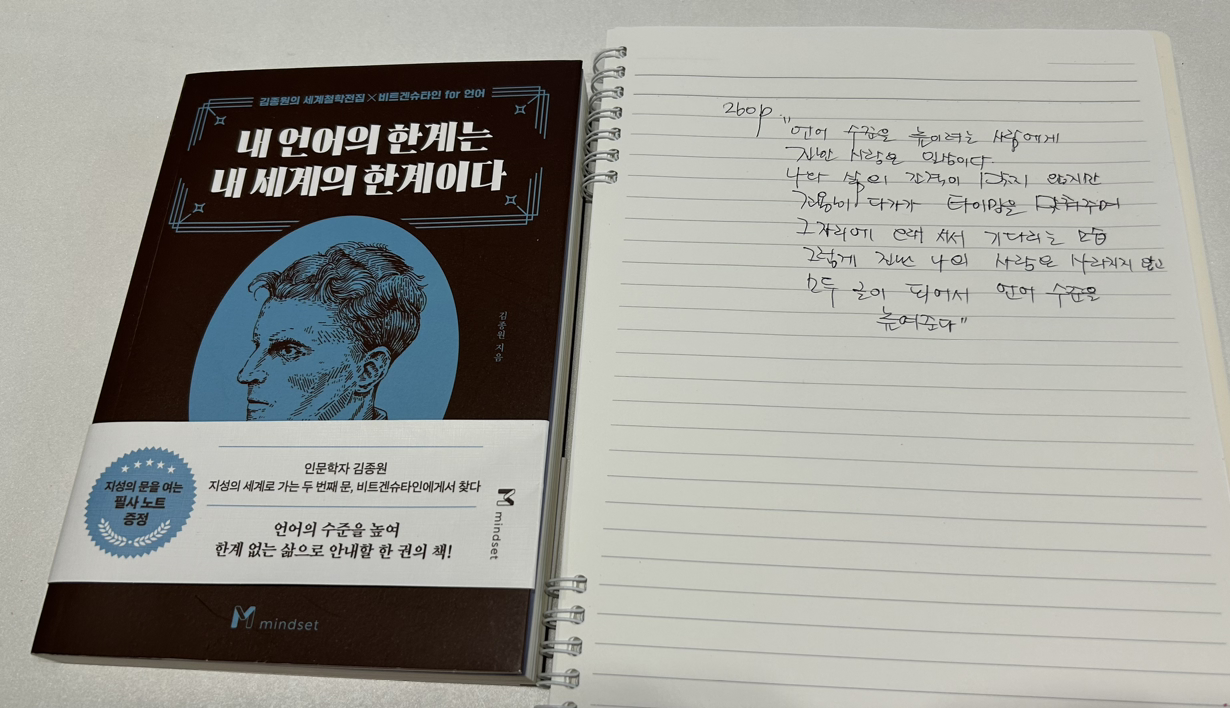 김종원의 세계철학전집×비트겐슈타인 for 언어
내 언어의 한계는
내 세계의 한계이다
김종원 지음
지성의 문을 여는
필사 노트
증정
인문학자 김종원
지성의 세계로 가는 두 번째 문, 비트겐슈타인에게서 찾다
언어의 수준을 높여
한계 없는 삶으로 안내할 한 권의 책!
mindset
mindset
260p.
"언어 수준을 높이려는 사람에게
진한 사랑은 일상이다
나와 삶의 간격이 맞지 않지만
조용히 다가가 타이밍을 맞춰주며
그 자리에 오래 서서 기다리는 모습
그렇게 건넨 나의 사랑은 사라지지 않고
모두 글이 되어서 언어 수준을
높여준다"